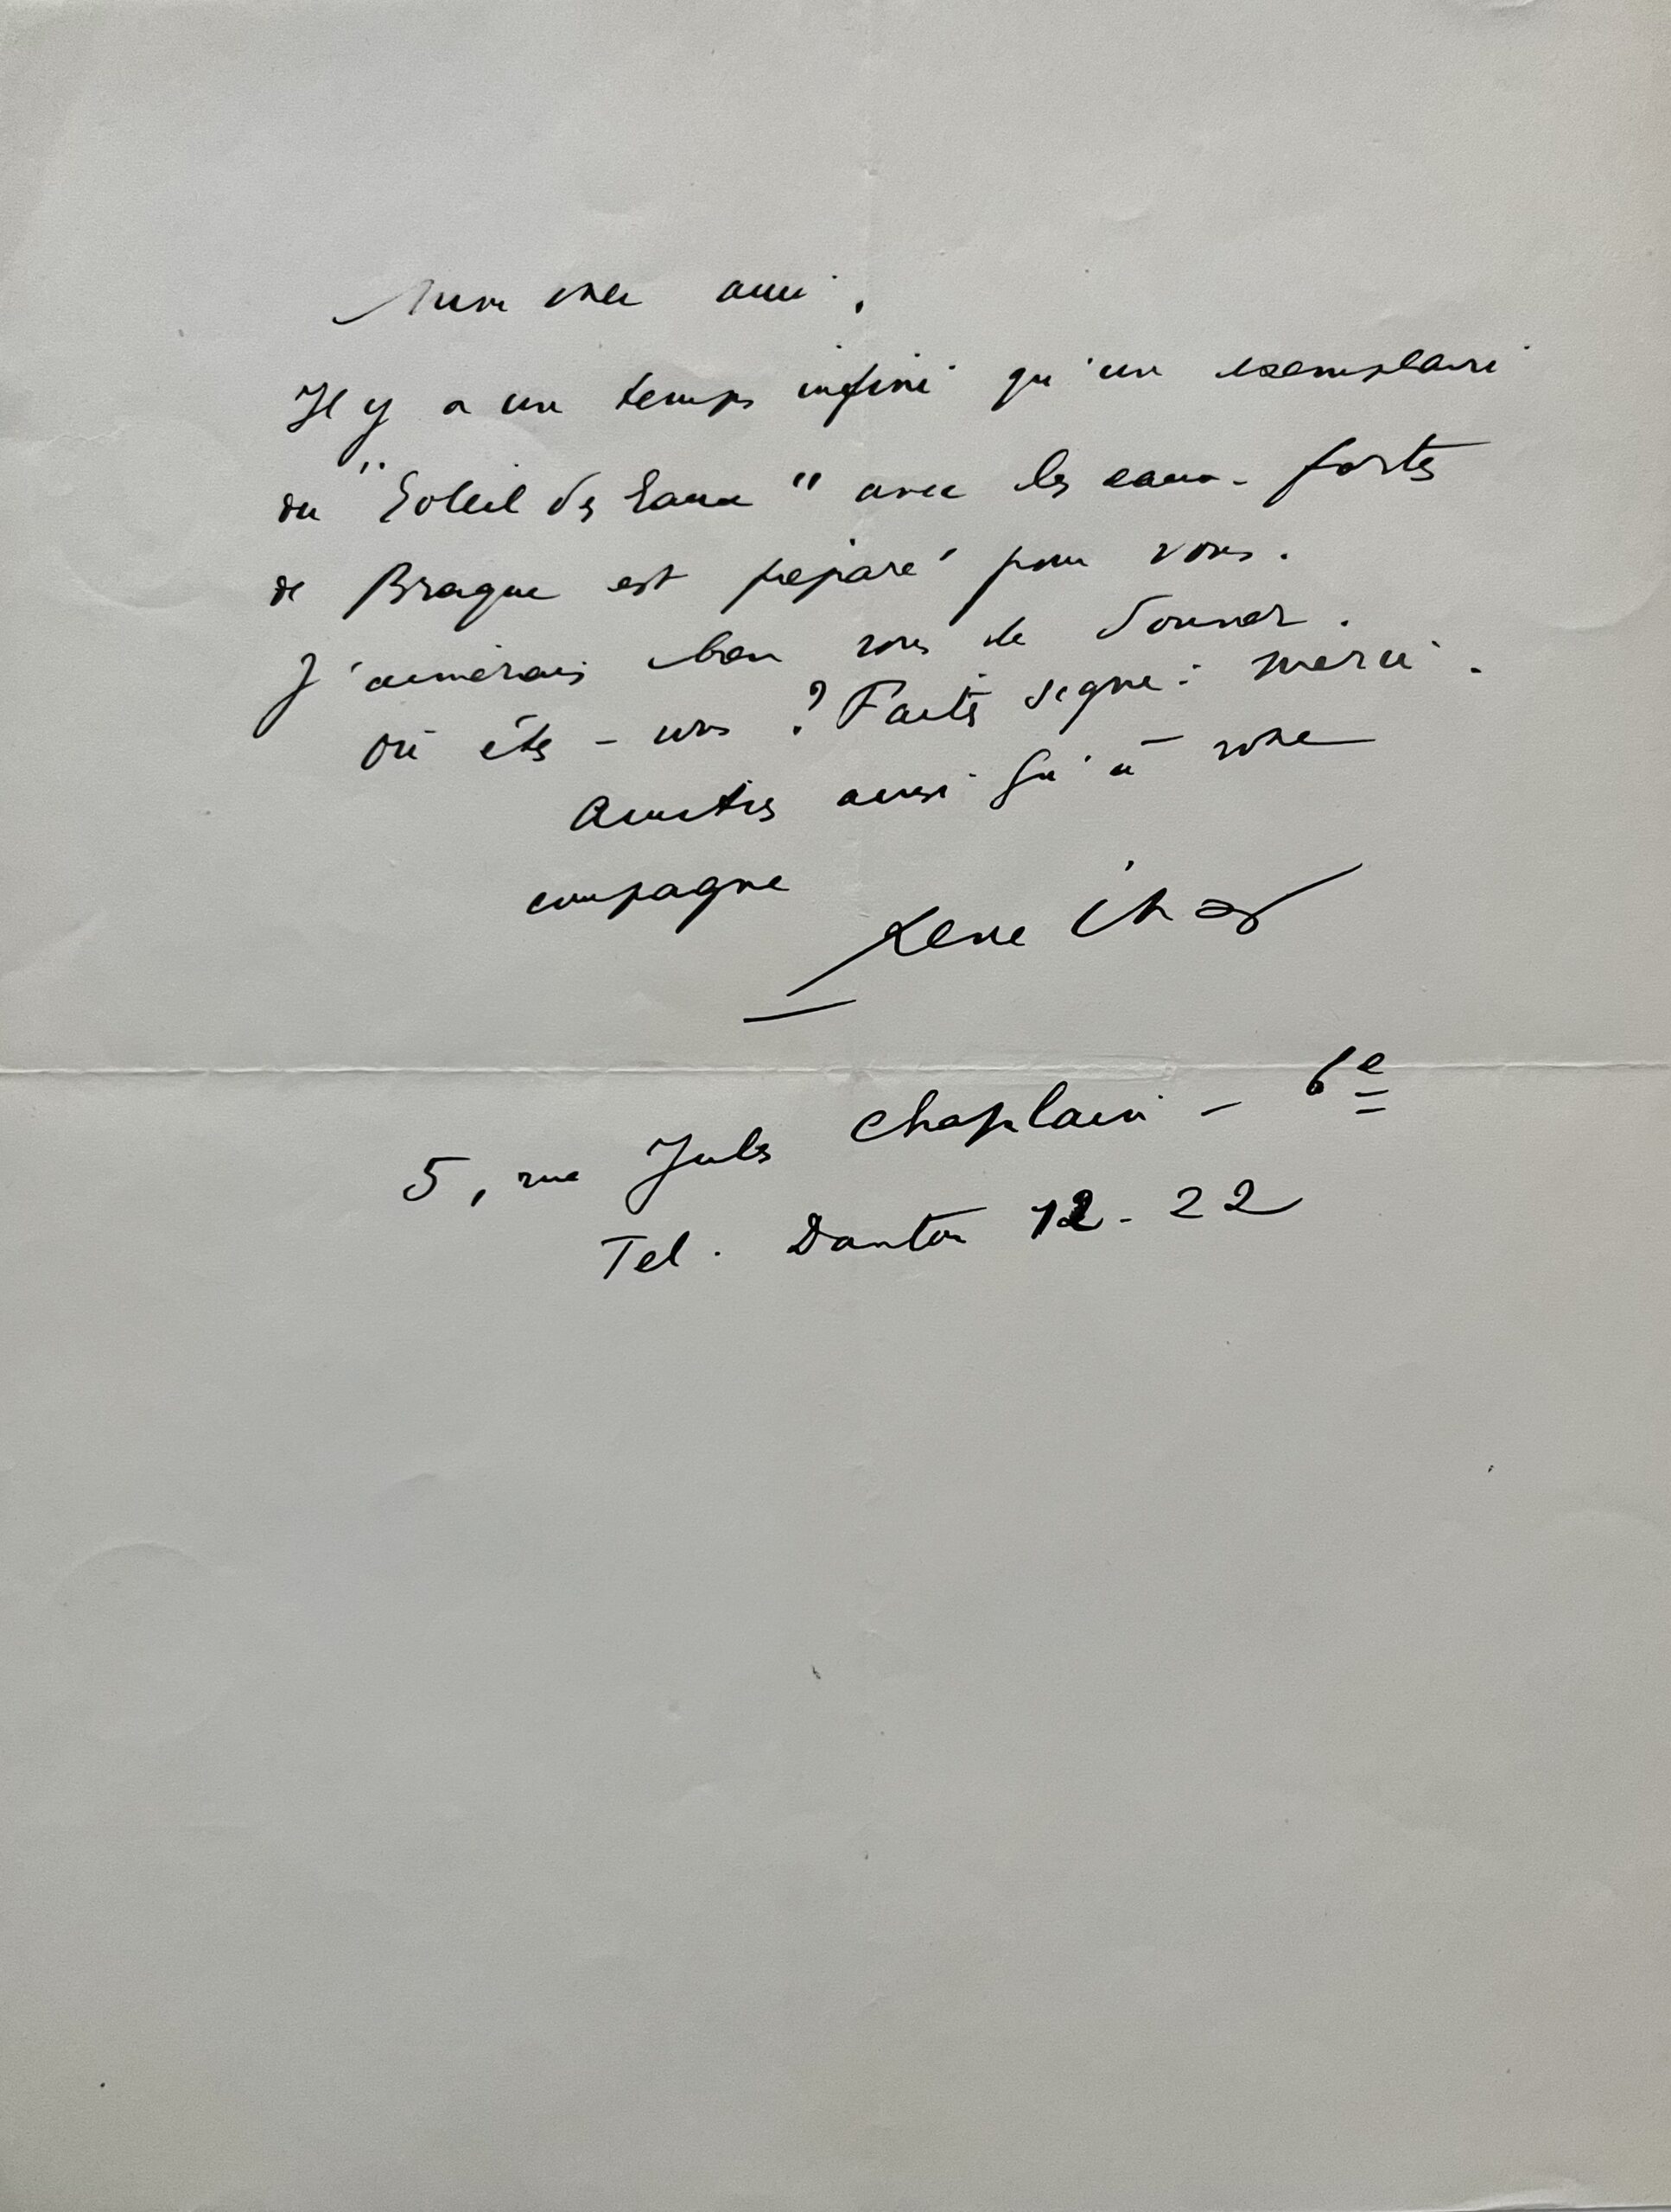 Mon cher ami,
Il y a un temps infini qu'un exemplaire
du "Soleil des Eaux" avec les eaux-fortes
de Braque est préparé pour vous.
J'aimerais bien vous le donner.
Où êtes-vous ? Faites signe : merci.
Amitiés ainsi qu'à votre
compagne
René Char
5, rue Jules Chaplain - 6e
Tel. Danton 12-22